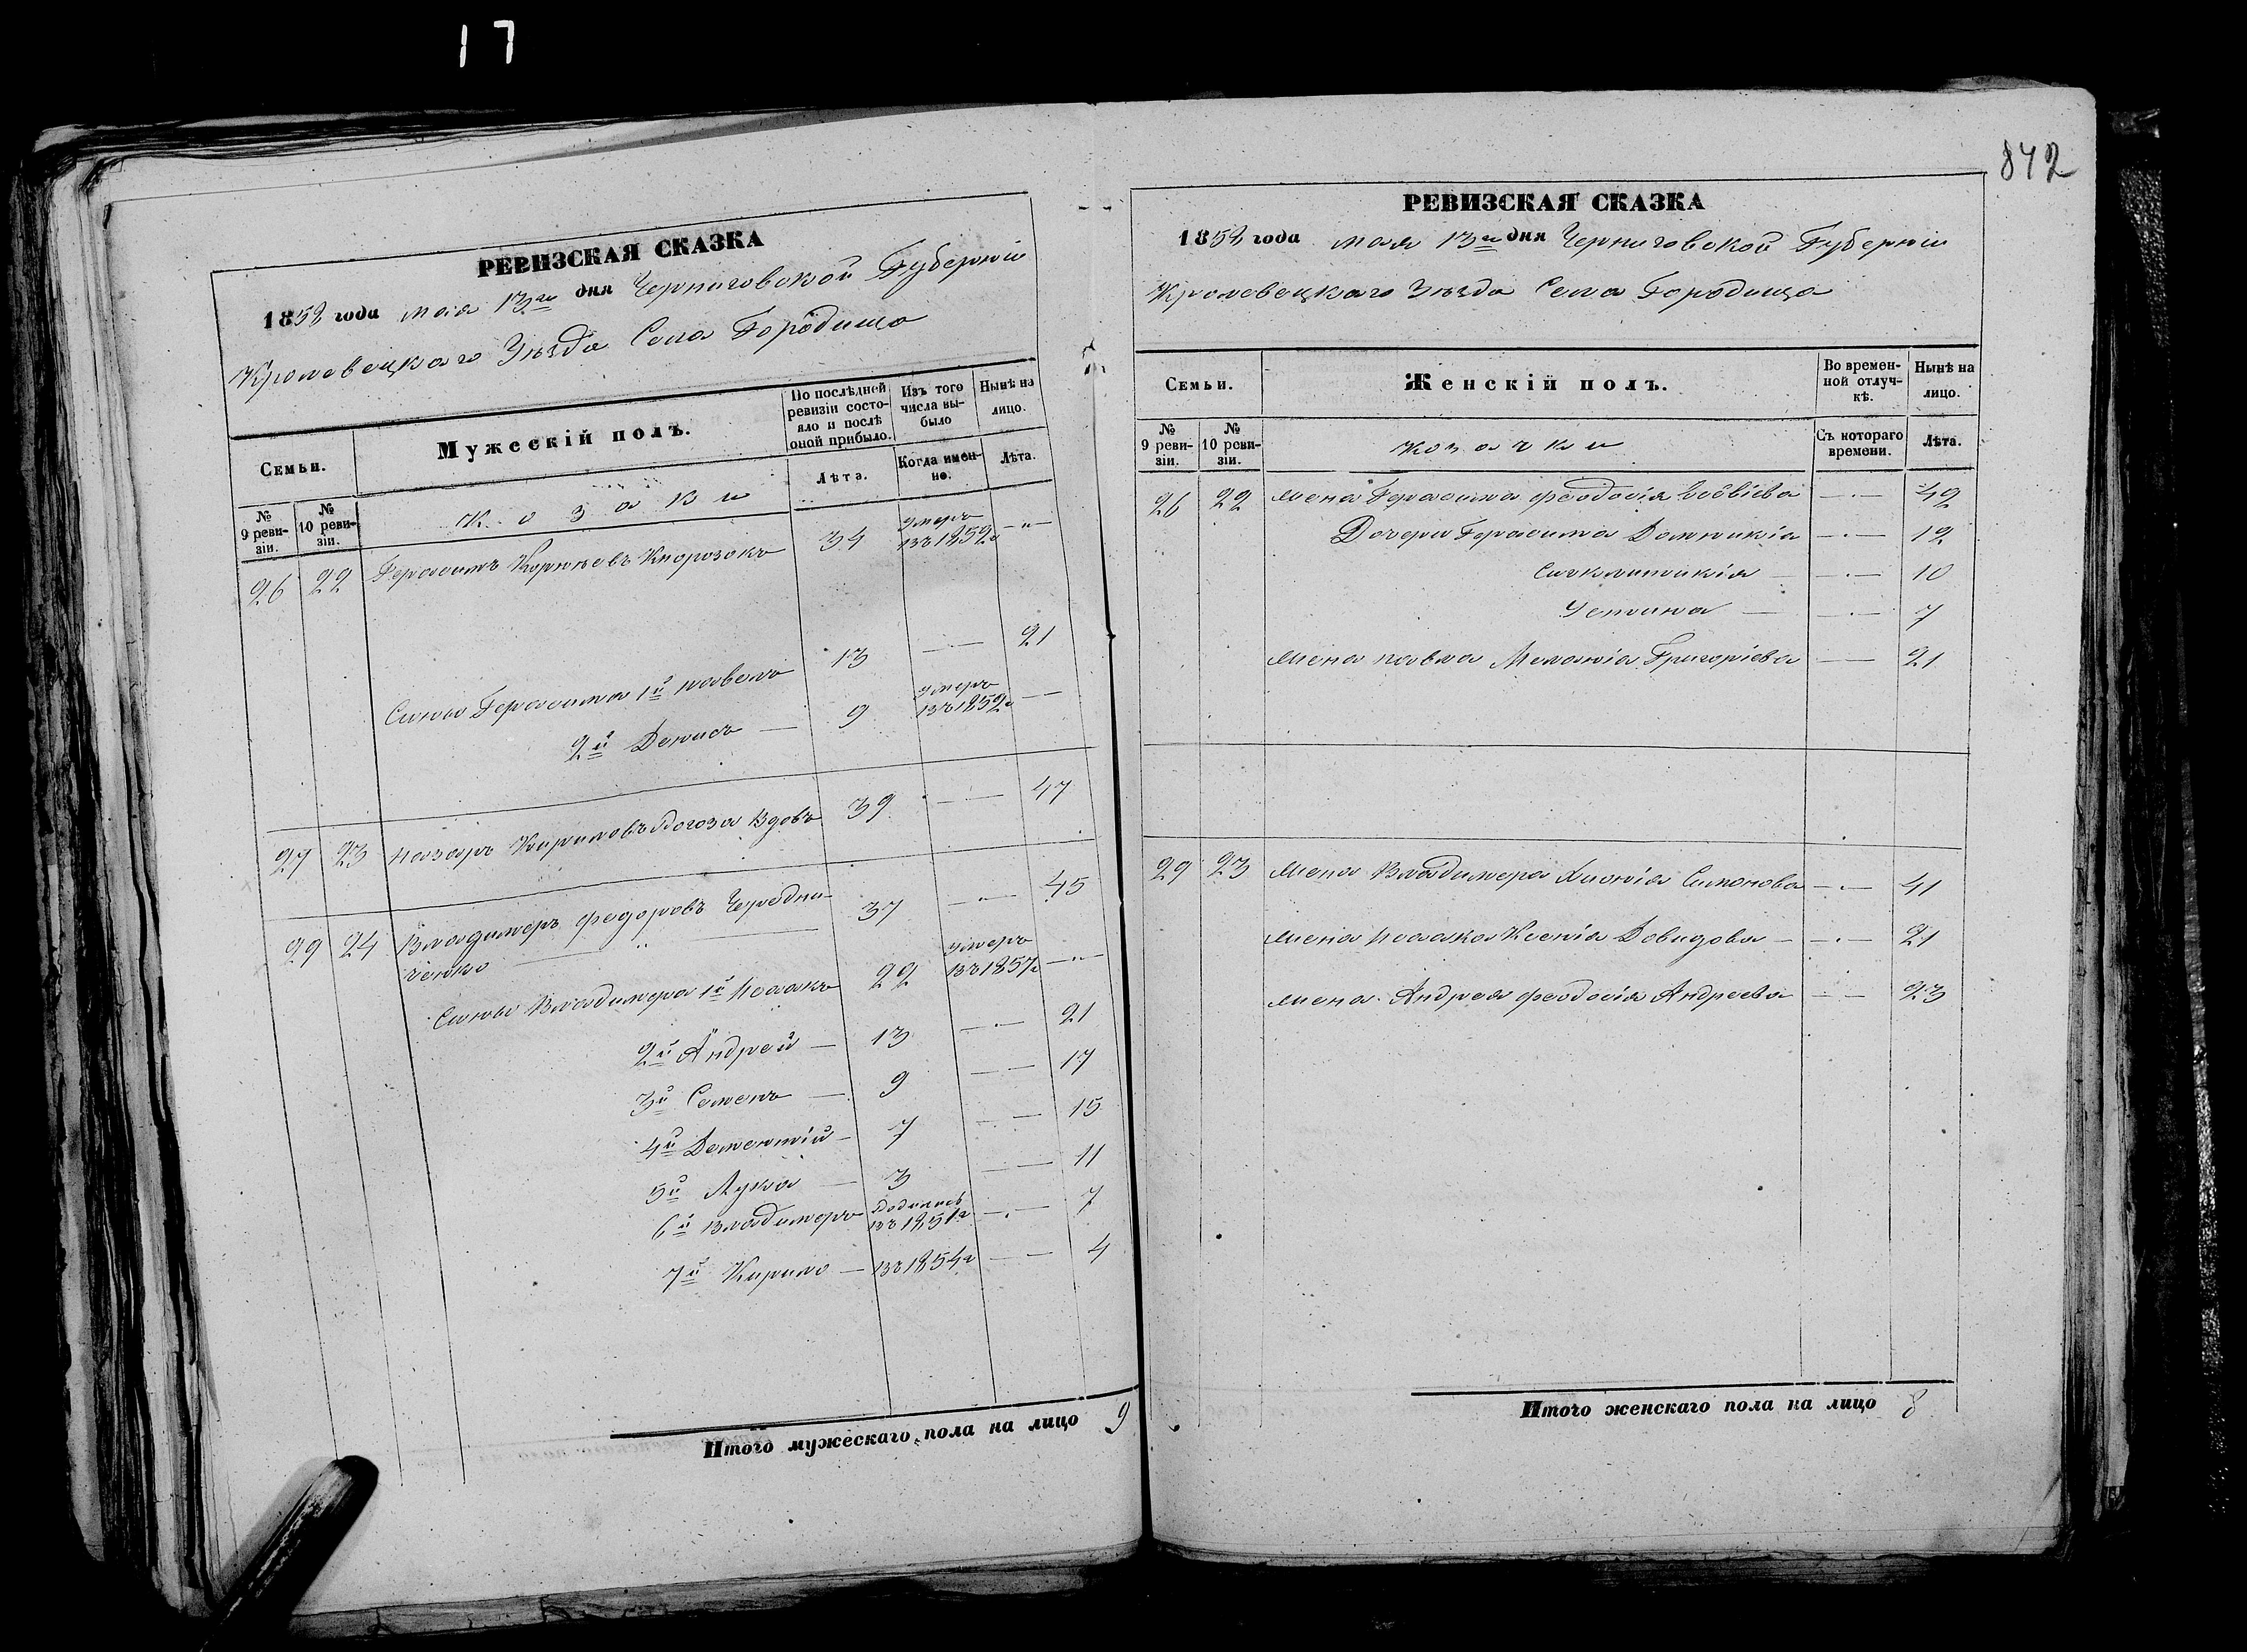 17
842
РЕВИЗСКАЯ СКАЗКА
1858 года мая 13го дня Черниговской Губерніи
Кролевецкаго Уѣзда Села Городища
Семьи.
Мужескій полъ.
По послѣдней ревизіи состояло и послѣ оной прибыло.
Изъ того числа выбыло
Нынѣ на лицо.
№ 9 ревизіи.
№ 10 ревизіи.
Козаки
Лѣта.
Когда именно.
Лѣта.
26 22 Герасимъ Корнѣевъ 34 умеръ въ 1852г —"—
Сыны Герасима 1й Павелъ 13 — — 21
2й Денисъ — 9 умеръ въ 1852г — —
27 23 Назаръ Кириловъ вдовъ 39 — — 47
29 24 Владимеръ Федоровъ Чередни- 37 —"— 45
ченко — " —
Сыны Владимера 1й Исаакъ 22 умеръ въ 1857г —"—
2й Андрей — 13 — — 21
3й Семенъ — 9 — — 17
4й Дементій — 7 — — 15
5й Лука — 3 — — 11
6й Владимеръ Родился въ 1851г — — 7
7й Кирило — въ 1854г — — 4
Итого мужескаго пола на лицо 9
РЕВИЗСКАЯ СКАЗКА
1858 года мая 13го дня Черниговской Губерніи
Кролевецкаго Уѣзда Села Городища
Семьи.
Женскій полъ.
Во временной отлучкѣ.
Нынѣ на лицо.
№ 9 ревизіи.
№ 10 ревизіи.
Козачки
Съ котораго времени.
Лѣта.
26 22 Жена Герасима Феодосія — — 42
Дочери Герасима Домникія — — 12
Синклитикія — — 10
Устина — — 7
Жена Павла Меланія Григоріева — — 21
29 23 Жена Владимера Хіонія Симонова — — 41
Жена Исаака Ксенія Давидова — — 21
Жена Андрея Феодосія Андреева — — 23
Итого женскаго пола на лицо 8